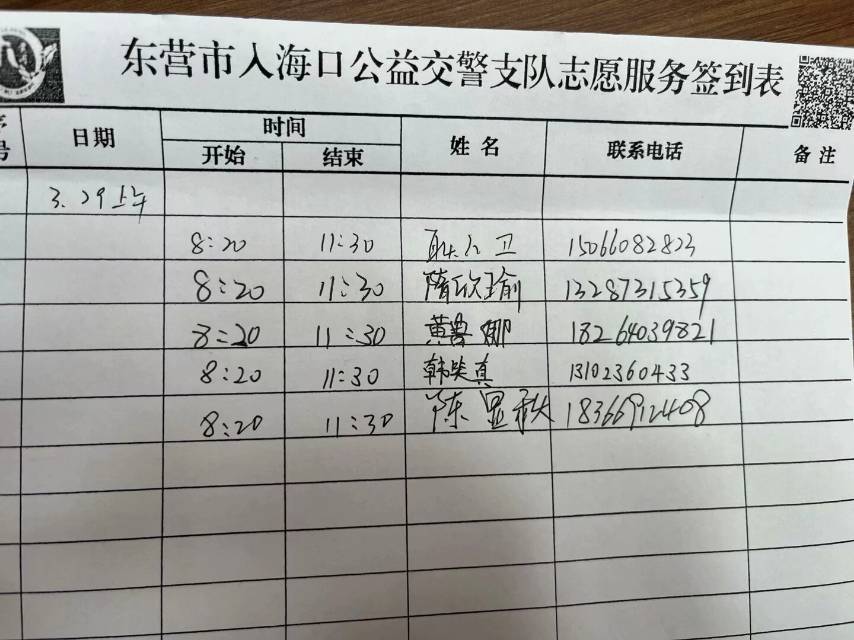 东营市入海口公益交警支队志愿服务签到表
号 日期 时间 姓名 联系电话 备注
开始 结束
3.29上午
8:20 11:30 卫 15066082823
8:20 11:30 隋欣瑜 13287315359
8:20 11:30 黄 娜 18264039821
8:20 11:30 韩 真 13102360433
8:20 11:30 陈显秋 18366912408